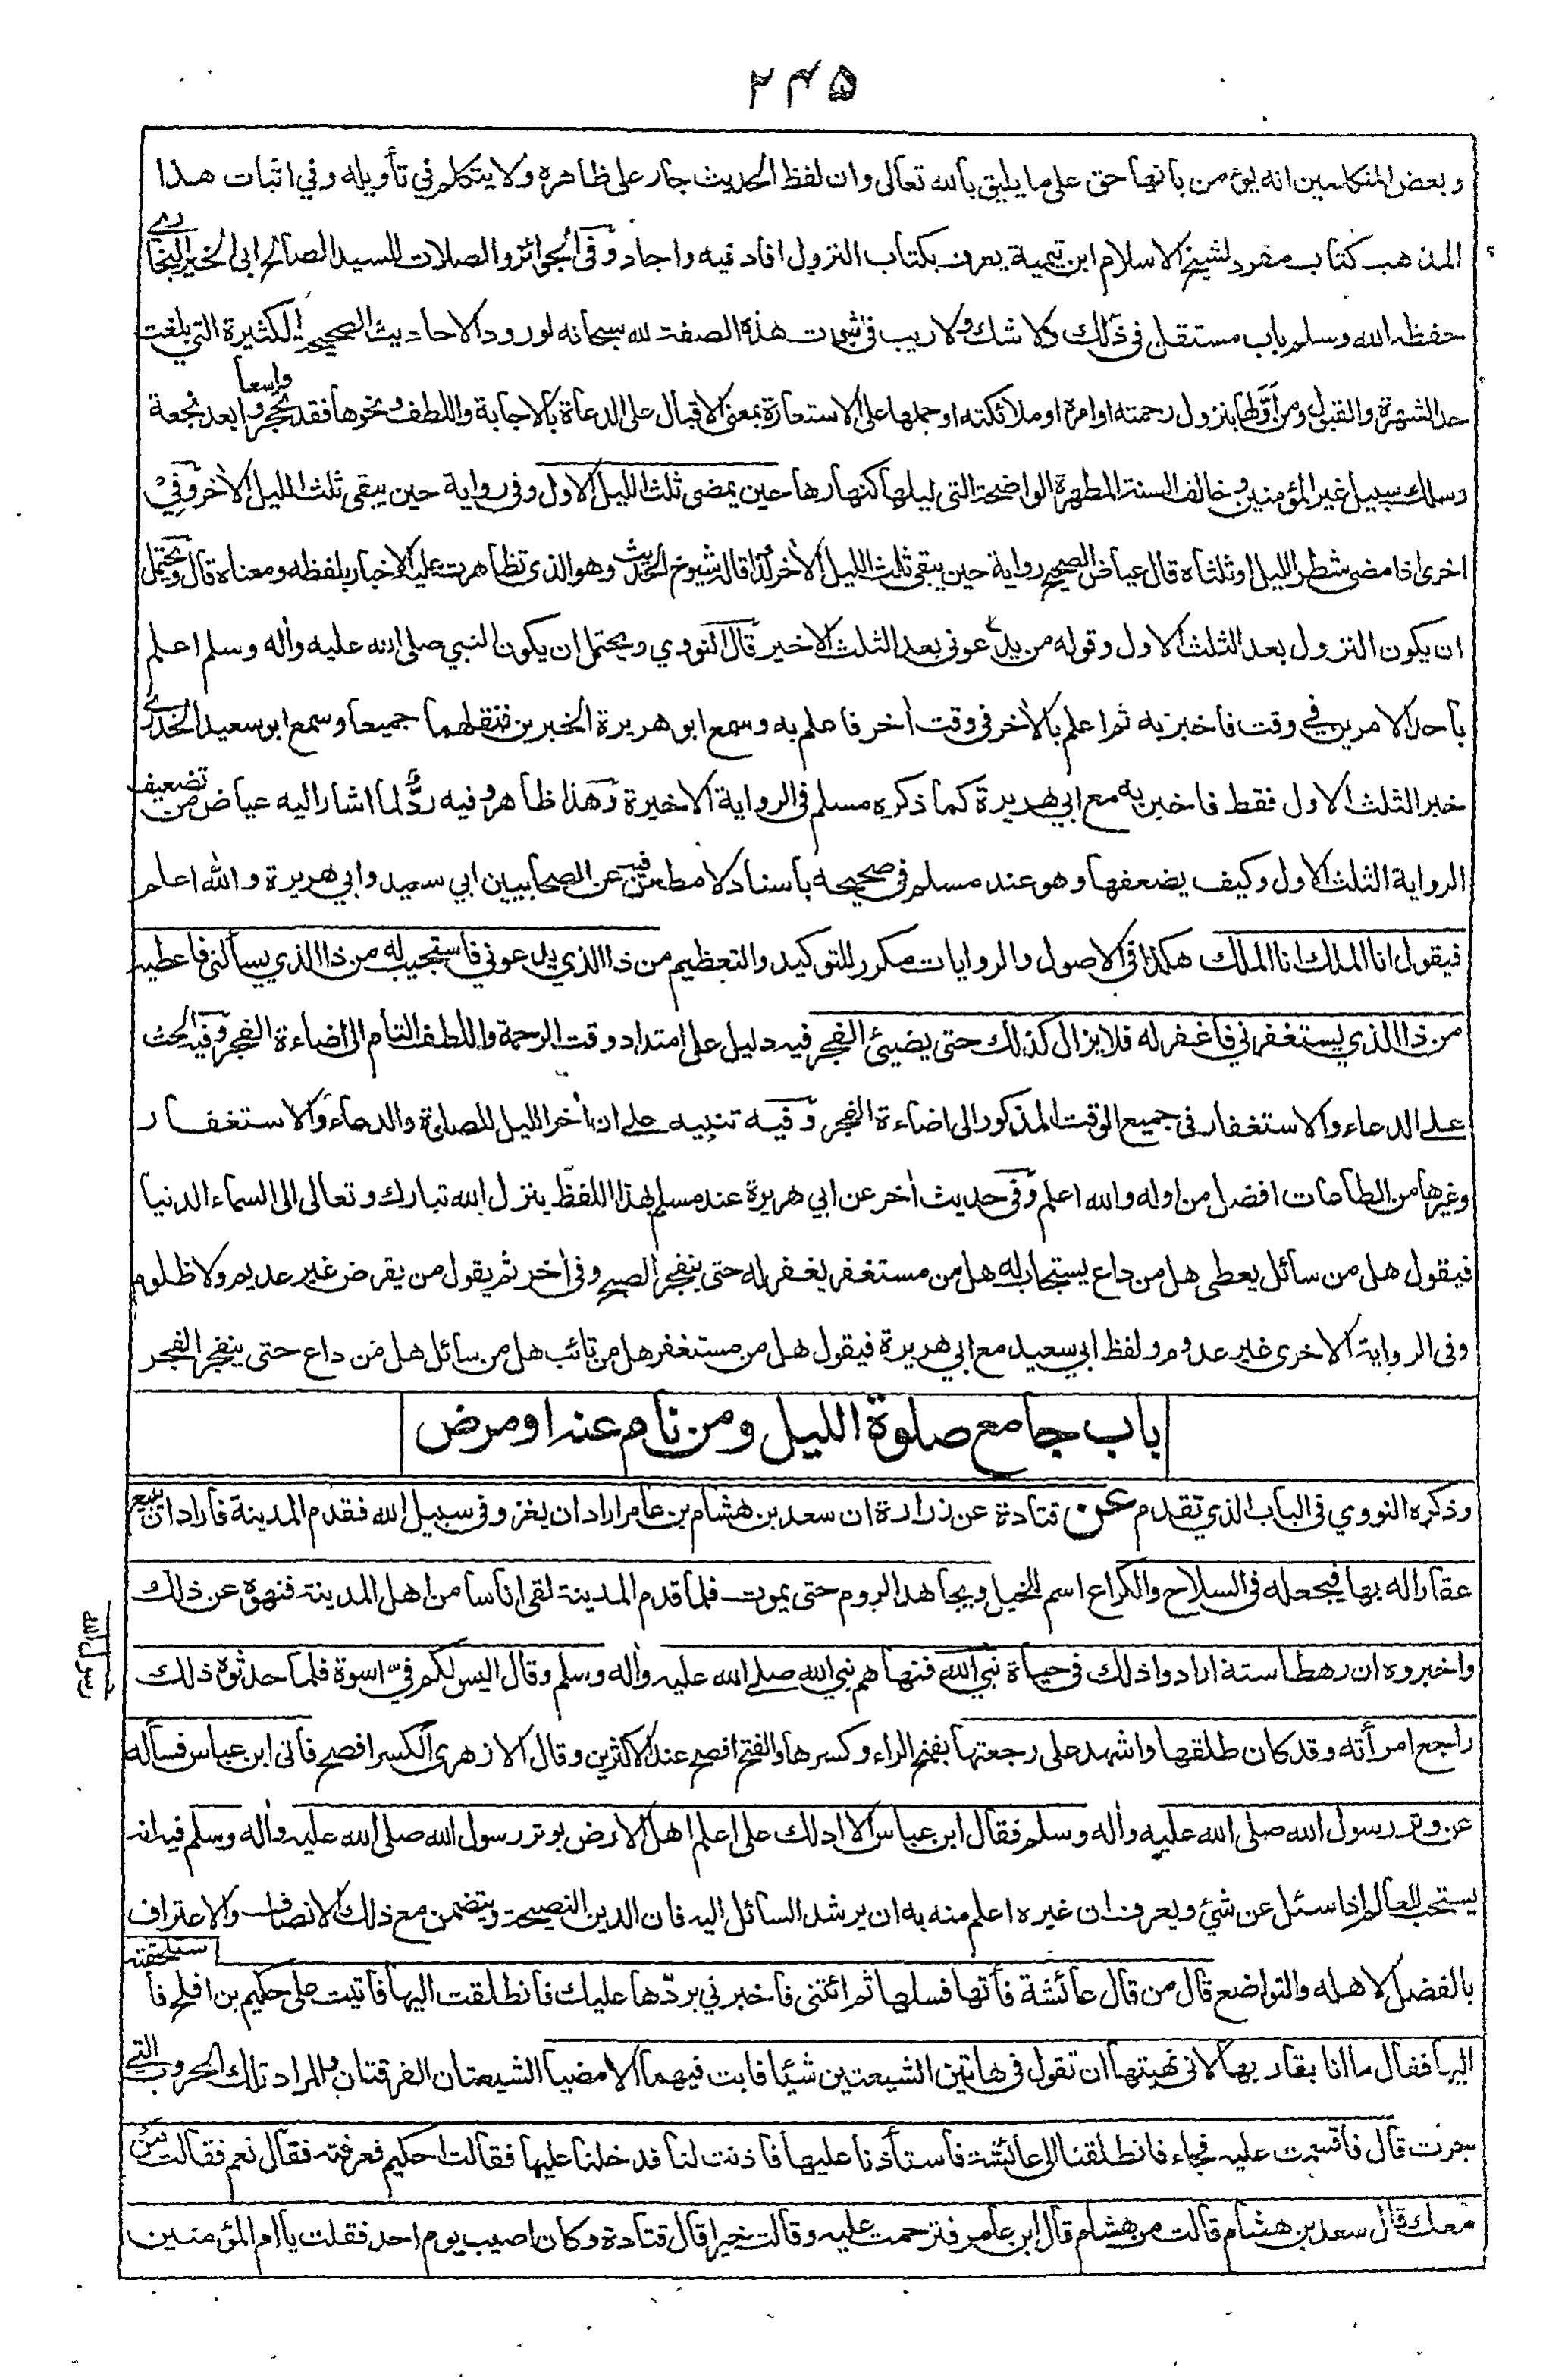 ٢٤٥
وبعض المتكلمين انه يؤمن بانها حق على ما يليق بالله تعالى وان لفظ الحديث جار على ظاهره ولا يتكلم في تأويله وفي اثبات هذا
المذهب كتاب مفرد لشيخ الاسلام ابن تيمية يعرف بكتاب النزول افاد فيه واجاد وفى الجوائز والصلات للسيد الصالح ابى الخير البخارى
حفظه الله وسلم باب مستقل فى ذلك ولا شك ولا ريب فى ثبوت هذه الصفة لله سبحانه لورود الاحاديث الصحيحة الكثيرة التي بلغت
حد الشهرة والقبول ومن اوّلها بنزول رحمته او امره او ملائكته او حملها على الاستعارة بمعنى الاقبال على الدعاة بالاجابة واللطف ونحوها فقد تحجر واسعا وابعد نجعة
وسلك سبيل غير المؤمنين وخالف السنة المطهرة الواضحة التى ليلها كنهارها حين يمضى ثلث الليل الاول وفى رواية حين يبقى ثلث الليل الأخر وفي
اخرى اذا مضى شطر الليل او ثلثاه قال عياض الصحيح رواية حين يبقى ثلث الليل الأخر كذا قال شيوخ الحديث وهو الذى تظاهرت عليه الاخبار بلفظه ومعناه قال ويحتمل
ان يكون النزول بعد الثلث الاول وقوله من يدعونى بعد الثلث الاخير قال النووي ويحتمل ان يكون النبي صلى الله عليه وأله وسلم اعلم
بأحد الامرين في وقت فاخبر به ثم اعلم بالأخر فى وقت أخر فاعلم به وسمع ابو هريرة الخبرين فنقلهما جميعا وسمع ابو سعيد الخدرى
خبر الثلث الاول فقط فاخبر به مع ابي هريرة كما ذكره مسلم فى الرواية الاخيرة وهذا ظاهر وفيه ردّ لما اشار اليه عياض من تضعيف
الرواية الثلث الاول وكيف يضعفها وهو عند مسلم فى صحيحه باسناد لا مطعن فيه عن الصحابيين ابي سعيد وابي هريرة والله اعلم
فيقول انا الملك انا الملك هكذا فى الاصول والروايات مكرر للتوكيد والتعظيم من ذا الذي يدعوني فاستجيب له من ذا الذي يسألنى فاعطيه
من ذا الذي يستغفرني فاغفر له فلا يزال كذلك حتى يضيئ الفجر فيه دليل على امتداد وقت الرحمة واللطف التام الى اضاءة الفجر وفيه الحث
على الدعاء والاستغفار فى جميع الوقت المذكور الى اضاءة الفجر وفيه تنبيه على ان أخر الليل للصلوة والدعاء والاستغفار
وغيرها من الطاعات افضل من اوله والله اعلم وفى حديث أخر عن ابي هريرة عند مسلم بهذا اللفظ ينزل الله تبارك وتعالى الى السماء الدنيا
فيقول هل من سائل يعطى هل من داع يستجاب له هل من مستغفر يغفر له حتى ينفجر الصبح وفى أخر ثم يقول من يقرض غير عديم ولا ظلوم
وفى الرواية الاخرى غير عدوم ولفظ ابي سعيد مع ابي هريرة فيقول هل من مستغفر هل من تائب هل من سائل هل من داع حتى ينفجر الفجر
باب جامع صلوة الليل ومن نام عنه او مرض
وذكره النووي فى الباب الذي تقدم عن قتادة عن زرارة ان سعد بن هشام بن عامر اراد ان يغزو فى سبيل الله فقدم المدينة فأراد ان يبيع
عقارا له بها فيجعله فى السلاح والكراع اسم للخيل ويجاهد الروم حتى يموت فلما قدم المدينة لقى اناسا من اهل المدينة فنهوه عن ذلك
واخبروه ان رهطا ستة ارادوا ذلك فى حياة نبي الله فنهاهم نبي الله صلى الله عليه وأله وسلم وقال اليس لكم فيّ اسوة فلما حدثوه ذلك
رسول الله
راجع امرأته وقد كان طلقها واشهد على رجعتها بفتح الراء وكسرها والفتح افصح عند الاكثرين وقال الازهرى الكسر افصح فاتى ابن عباس فسأله
عن وتر رسول الله صلى الله عليه وأله وسلم فقال ابن عباس الا ادلك على اعلم اهل الارض بوتر رسول الله صلى الله عليه وأله وسلم فيه انه
يستحب للعالم اذا سئل عن شئ ويعرف ان غيره اعلم منه به ان يرشد السائل اليه فان الدين النصيحة ويتضمن مع ذلك الانصاف والاعتراف
بالفضل لاهله والتواضع قال من قال عائشة فأتها فسلها ثم ائتنى فاخبرني بردّها عليك فانطلقت اليها فاتيت على حكيم بن افلح فاستلحقته
اليها فقال ما انا بقاربها لانى نهيتها ان تقول فى هاتين الشيعتين شيئا فابت فيهما الا مضيا الشيعتان الفرقتان والمراد تلك الحروب التي
جرت قال فأقسمت عليه فجاء فانطلقنا الى عائشة فاستأذنا عليها فاذنت لنا فدخلنا عليها فقالت احكيم فعرفته فقال نعم فقالت من
معك قال سعد بن هشام قالت من هشام قال ابن عامر فترحمت عليه وقالت خيرا قال قتادة وكان اصيب يوم احد فقلت يا ام المؤمنين